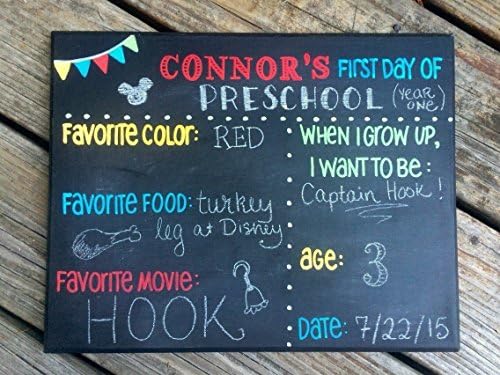 CONNOR'S FIRST DAY OF
PRESCHOOL (YEAR ONE)
FAVORITE COLOR: RED
FAVORITE FOOD: turkey
leg at Disney
FAVORITE MOVIE:
HOOK
WHEN I GROW UP,
I WANT TO BE:
Captain Hook!
AGE: 3
DATE: 7/22/15